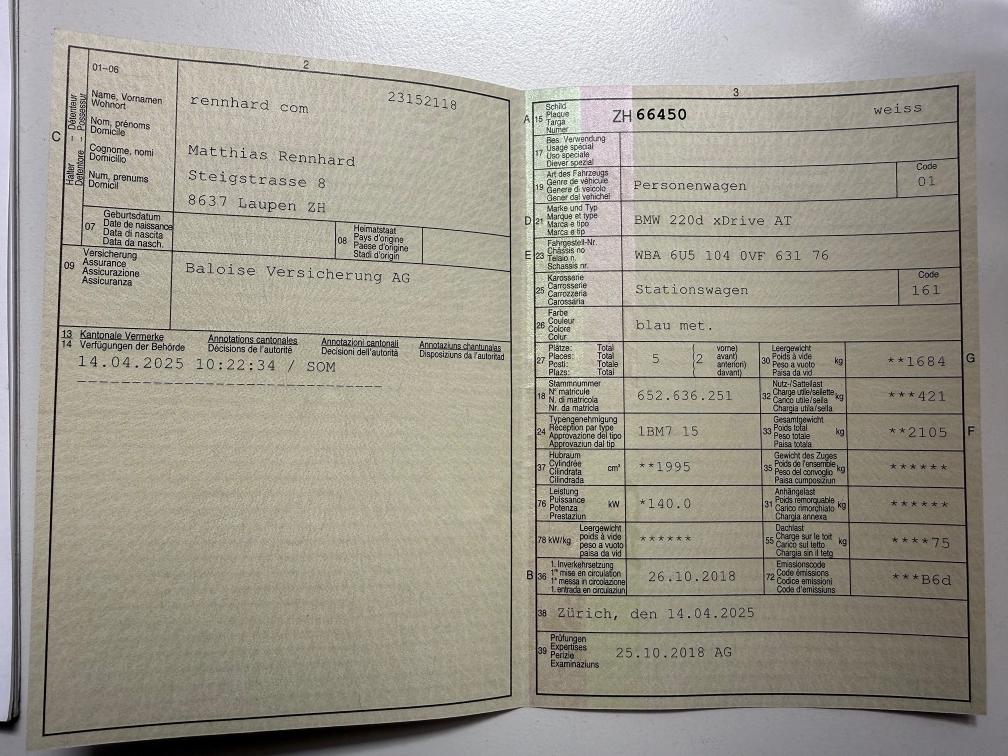 2
01–06
C
Halter – Détenteur
Detentore – Possessur
Name, Vornamen
Wohnort
Nom, prénoms
Domicile
Cognome, nomi
Domicilio
Num, prenums
Domicil
rennhard com 23152118
Matthias Rennhard
Steigstrasse 8
8637 Laupen ZH
07
Geburtsdatum
Date de naissance
Data di nascita
Data da nasch.
08
Heimatstaat
Pays d'origine
Paese d'origine
Stadi d'origin
09
Versicherung
Assurance
Assicurazione
Assicuranza
Baloise Versicherung AG
13 Kantonale Vermerke Annotations cantonales Annotazioni cantonali Annotaziuns chantunalas
14 Verfügungen der Behörde Décisions de l'autorité Decisioni dell'autorità Disposiziuns da l'autoritad
14.04.2025 10:22:34 / SOM
3
A 15
Schild
Plaque
Targa
Numer
ZH 66450 weiss
17
Bes. Verwendung
Usage spécial
Uso speciale
Diever spezial
19
Art des Fahrzeugs
Genre de véhicule
Genere di veicolo
Gener dal vehichel
Personenwagen
Code
01
D 21
Marke und Typ
Marque et type
Marca e tipo
Marca e tip
BMW 220d xDrive AT
E 23
Fahrgestell-Nr.
Châssis no
Telaio n.
Schassis nr.
WBA 6U5 104 0VF 631 76
25
Karosserie
Carrosserie
Carrozzeria
Carossaria
Stationswagen
Code
161
26
Farbe
Couleur
Colore
Colur
blau met.
27
Plätze: Total
Places: Total
Posti: Totale
Plazs: Total
5
(2
vorne)
avant)
anteriori)
davant)
30
Leergewicht
Poids à vide
Peso a vuoto
Paisa da vid
kg
**1684
G
18
Stammnummer
N° matricule
N. di matricola
Nr. da matricla
652.636.251
32
Nutz-/Sattellast
Charge utile/sellette
Carico utile/sella
Chargia utila/sella
kg
***421
24
Typengenehmigung
Réception par type
Approvazione del tipo
Approvaziun dal tip
1BM7 15
33
Gesamtgewicht
Poids total
Peso totale
Paisa totala
kg
**2105
F
37
Hubraum
Cylindrée
Cilindrata
Cilindrada
cm³
**1995
35
Gewicht des Zuges
Poids de l'ensemble
Peso del convoglio
Paisa cumposiziun
kg
******
76
Leistung
Puissance
Potenza
Prestaziun
kW
*140.0
31
Anhängelast
Poids remorquable
Carico rimorchiato
Chargia annexa
kg
******
78 kW/kg
Leergewicht
poids à vide
peso a vuoto
paisa da vid
******
55
Dachlast
Charge sur le toit
Carico sul tetto
Chargia sin il tetg
kg
****75
B 36
1. Inverkehrsetzung
1re mise en circulation
1a messa in circolazione
1. entrada en circulaziun
26.10.2018
72
Emissionscode
Code émissions
Codice emissioni
Code d'emissiuns
***B6d
38 Zürich, den 14.04.2025
39
Prüfungen
Expertises
Perizie
Examinaziuns
25.10.2018 AG